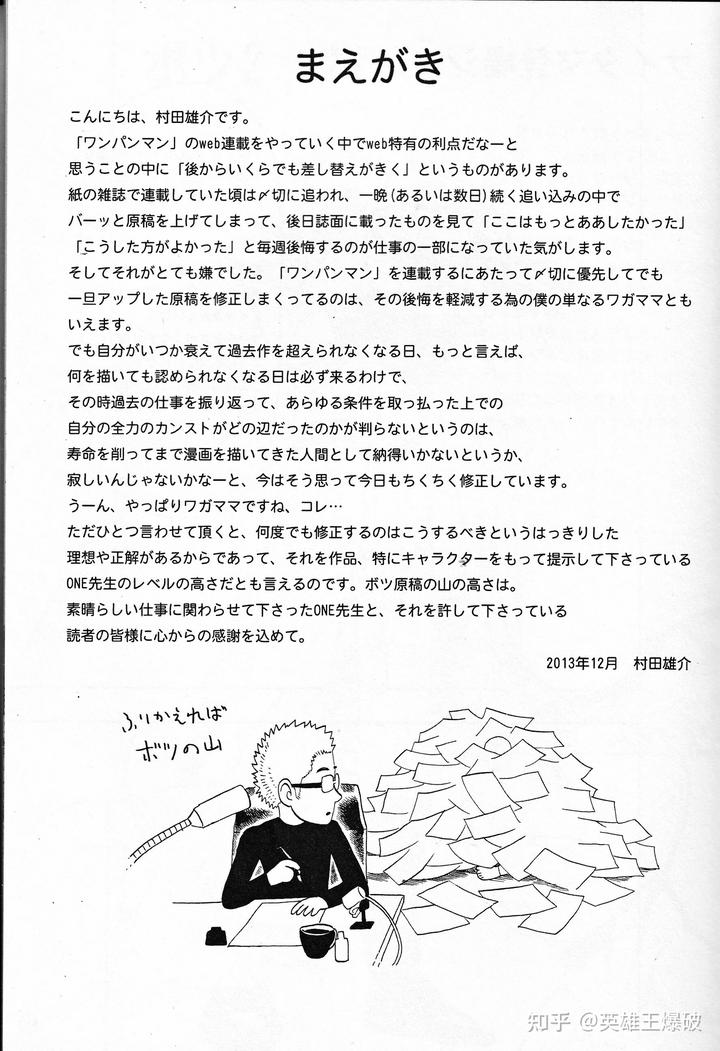 まえがき
こんにちは、村田雄介です。
「ワンパンマン」のweb連載をやっていく中でweb特有の利点だなーと
思うことの中に「後からいくらでも差し替えがきく」というものがあります。
紙の雑誌で連載していた頃は〆切に追われ、一晩(あるいは数日)続く追い込みの中で
バーッと原稿を上げてしまって、後日誌面に載ったものを見て「ここはもっとああしたかった」
「こうした方がよかった」と毎週後悔するのが仕事の一部になっていた気がします。
そしてそれがとても嫌でした。「ワンパンマン」を連載するにあたって〆切に優先してでも
一旦アップした原稿を修正しまくってるのは、その後悔を軽減する為の僕の単なるワガママとも
いえます。
でも自分がいつか衰えて過去作を超えられなくなる日、もっと言えば、
何を描いても認められなくなる日は必ず来るわけで、
その時過去の仕事を振り返って、あらゆる条件を取っ払った上での
自分の全力のカンストがどの辺だったのかが判らないというのは、
寿命を削ってまで漫画を描いてきた人間として納得いかないというか、
寂しいんじゃないかなーと、今はそう思って今日もちくちく修正しています。
うーん、やっぱりワガママですね、コレ…
ただひとつ言わせて頂くと、何度でも修正するのはこうするべきというはっきりした
理想や正解があるからであって、それを作品、特にキャラクターをもって提示して下さっている
ONE先生のレベルの高さだとも言えるのです。ボツ原稿の山の高さは。
素晴らしい仕事に関わらせて下さったONE先生と、それを許して下さっている
読者の皆様に心からの感謝を込めて。
2013年12月　村田雄介
ふりかえれば
ボツの山
知乎 @英雄王爆破